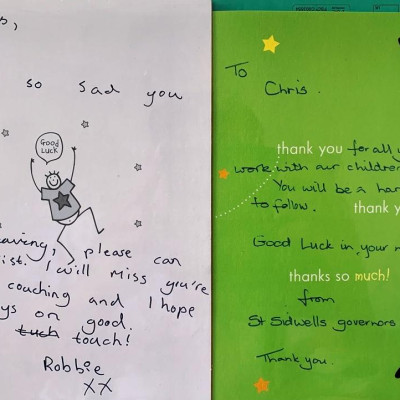 so sad you
Good
Luck
leaving, please can
I will miss you're
coaching and I hope
on good.
tuch touch!
Robbie
XX
To
Chris.
thank you for all
work with our children
You will be a
to follow. thank
Good Luck in your
thanks so much!
from
St Sidwells governors
Thank you.